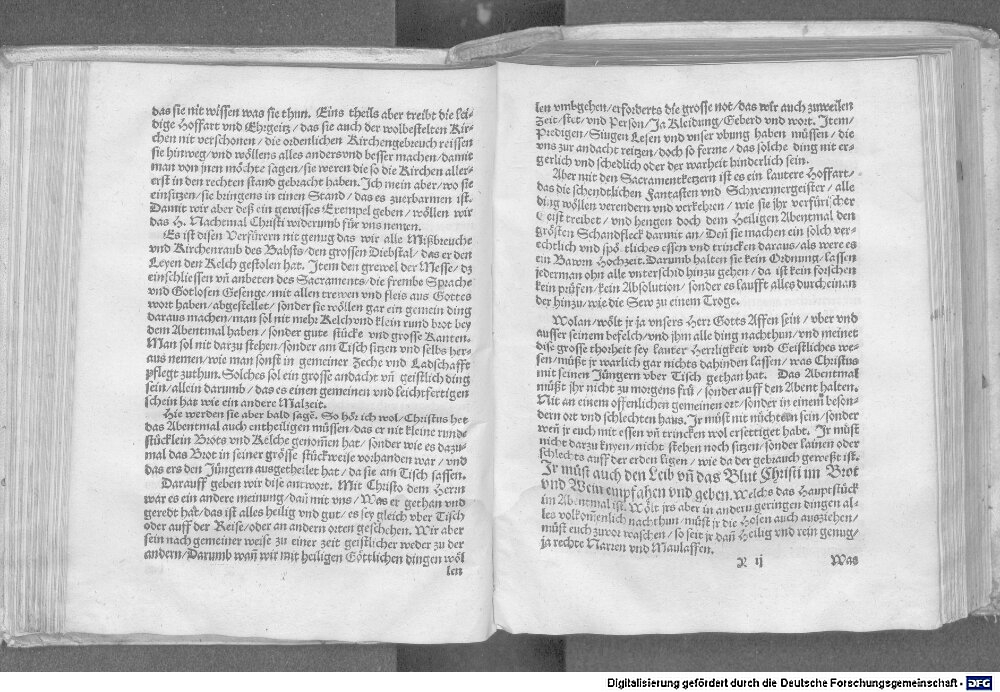 das sie nit wissen was sie thun. Eins theils aber treibt die lei-
dige Hoffart vnd Ehrgeitz / das sie auch der wolbestelten Kir-
chen nit verschonen / die ordenlichen Kirchengebreuch reissen
sie hinweg / vnd wöllens alles anders vnd besser machen / damit
man von jnen möchte sagen / sie weren die so die Kirchen aller-
erst in den rechten stand gebracht haben. Ich mein aber / wo sie
einsitzen / sie bringens in einen Stand / das es zuerbarmen ist.
Damit wir aber deß ein gewisses Exempel geben / wöllen wir
das H. Nachtmal Christi widerumb für vns nemen.
Es ist disen Verfürern nit genug das wir alle Mißbreuche
vnd Kirchenraub des Babsts / den grossen Diebstal / das er den
Leyen den Kelch gestolen hat. Item den grewel der Messe / dz
einschliessen vñ anbeten des Sacraments / die frembe Sprache
vnd Gotlosen Gesenge / mit allen trewen vnd fleis aus Gottes
wort haben / abgestellet / sonder sie wöllen gar ein gemein ding
daraus machen / man sol nit mehr Kelch vnd klein rund brot bey
dem Abentmal haben / sonder gute stücke vnd grosse Kanten.
Man sol nit darzu stehen / sonder am Tisch sitzen vnd selbs her-
aus nemen / wie man sonst in gemeiner Zeche vnd Ladschafft
pflegt zuthun. Solches sol ein grosse andacht vñ geistlich ding
sein / allein darumb / das es einen gemeinen vnd leichfertigen
schein hat wie ein andere Malzeit.
Hie werden sie aber bald sagē. So hör ich wol / Christus het
das Abentmal auch entheiligen müssen / das er nit kleine runde
stücklein Brots vnd Kelche genom̄en hat / sonder wie es dazu-
mal das Brot in seiner grösse stückweise vorhanden war / vnd
das ers den Jüngern ausgetheilet hat / da sie am Tisch sassen.
Darauff geben wir dise antwort. Mit Christo dem Herrn
war es ein andere meinung / dañ mit vns / Was er gethan vnd
geredt hat / das ist alles heilig vnd gut / es sey gleich vber Tisch
oder auff der Reise / oder an andern orten geschehen. Wir aber
sein nach gemeiner weise zu einer zeit geistlicher weder zu der
andern / Darumb wañ wir mit heiligen Göttlichen dingen wöl
len
len vmbgehen / erforderts die grosse not / das wir auch zuweilen
Zeit / stet / vnd Person / Ja Kleidung / Geberd vnd wort. Item /
Predigen / Singen Lesen vnd vnser vbung haben müssen / die
vns zur andacht reitzen / doch so ferrne / das solche ding nit er-
gerlich vnd schedlich oder der warheit hinderlich sein.
Aber mit den Sacramentketzern ist es ein lautere Hoffart /
das die schendtlichen Fantasten vnd Schwermergeister / alle
ding wöllen verendern vnd verkehren / wie sie jhr verfürischer
Geist treibet / vnd hengen doch dem Heiligen Abentmal den
grösten Schandfleck darmit an / Deñ sie machen ein solch ver-
echtlich vnd spötliches essen vnd trincken daraus / als were es
ein Bawrn Hochzeit. Darumb halten sie kein Ordnung / lassen
jederman ohn alle vnterschid hinzu gehen / da ist kein forschen
kein prüfen / kein Absolution / sonder es laufft alles durcheinan
der hinzu / wie die Sew zu einem Troge.
Wolan / wölt jr ja vnsers Herr Gotts Affen sein / vber vnd
ausser seinem befelch / vnd jhm alle ding nachthun / vnd meinet
dise grosse thorheit sey lauter Herrligkeit vnd Geistliches we-
sen / müßt jr warlich gar nichts dahinden lassen / was Christus
mit seinen Jüngern vber Tisch gethan hat. Das Abentmal
müßt jhr nicht zu morgens frü / sonder auff den Abent halten.
Nit an einem offenlichen gemeinen ort / sonder in einem beson-
dern ort vnd schlechten haus. Jr müst nit nüchtern sein / sonder
weñ jr euch mit essen vñ trincken wol ersettiget habt. Jr müst
nicht darzu knyen / nicht stehen noch sitzen / sonder lainen oder
schlechts auff der erden ligen / wie da der gebrauch geweßt ist.
Jr müst auch den Leib vñ das Blut Christi im Brot
vnd Wein empfahen vnd geben. Welchs das Hauptstück
im Abentmal ist. Wölt jrs aber in andern geringen dingen al-
les volkom̄enlich nachthun / müst jr die Hosen auch ausziehen /
müst euch zuvor waschen / so seit jr dañ Heilig vnd rein genug /
ja rechte Narren vnd Maulaffen.
R ij Was
Digitalisierung gefördert durch die Deutsche Forschungsgemeinschaft - DFG